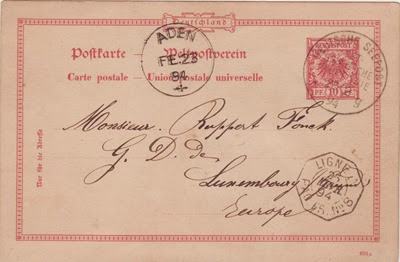 Deutschland
Postkarte — Weltpostverein
Carte postale — Union postale universelle
REICHSPOST
PF. 10 PF.
ADEN
FE. 23
94
DEUTSCHE SEEPOST
94
Nur für die Adresse
Monsieur Ruppert Fonck.
G. D. de
Luxembourg
Europe
LIGNE
94